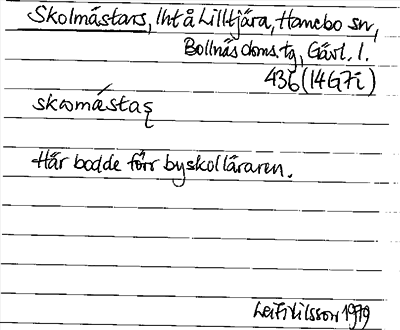 Skolmästars, Iht å Lilltjära, Hanebo sn,
Bollnäs doms. tg, Gävl. l.
436 (14G7i)
skωmástaș
Här bodde förr byskolläraren.
Leif Nilsson 1979